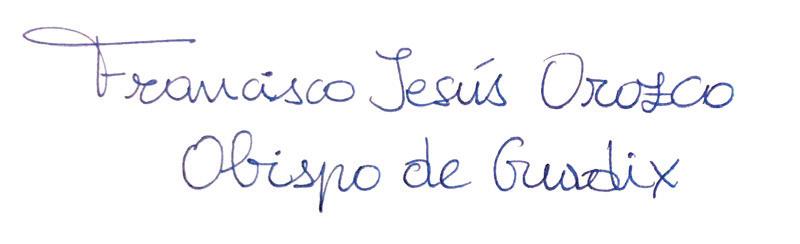 Francisco Jesús Orozco
Obispo de Guadix